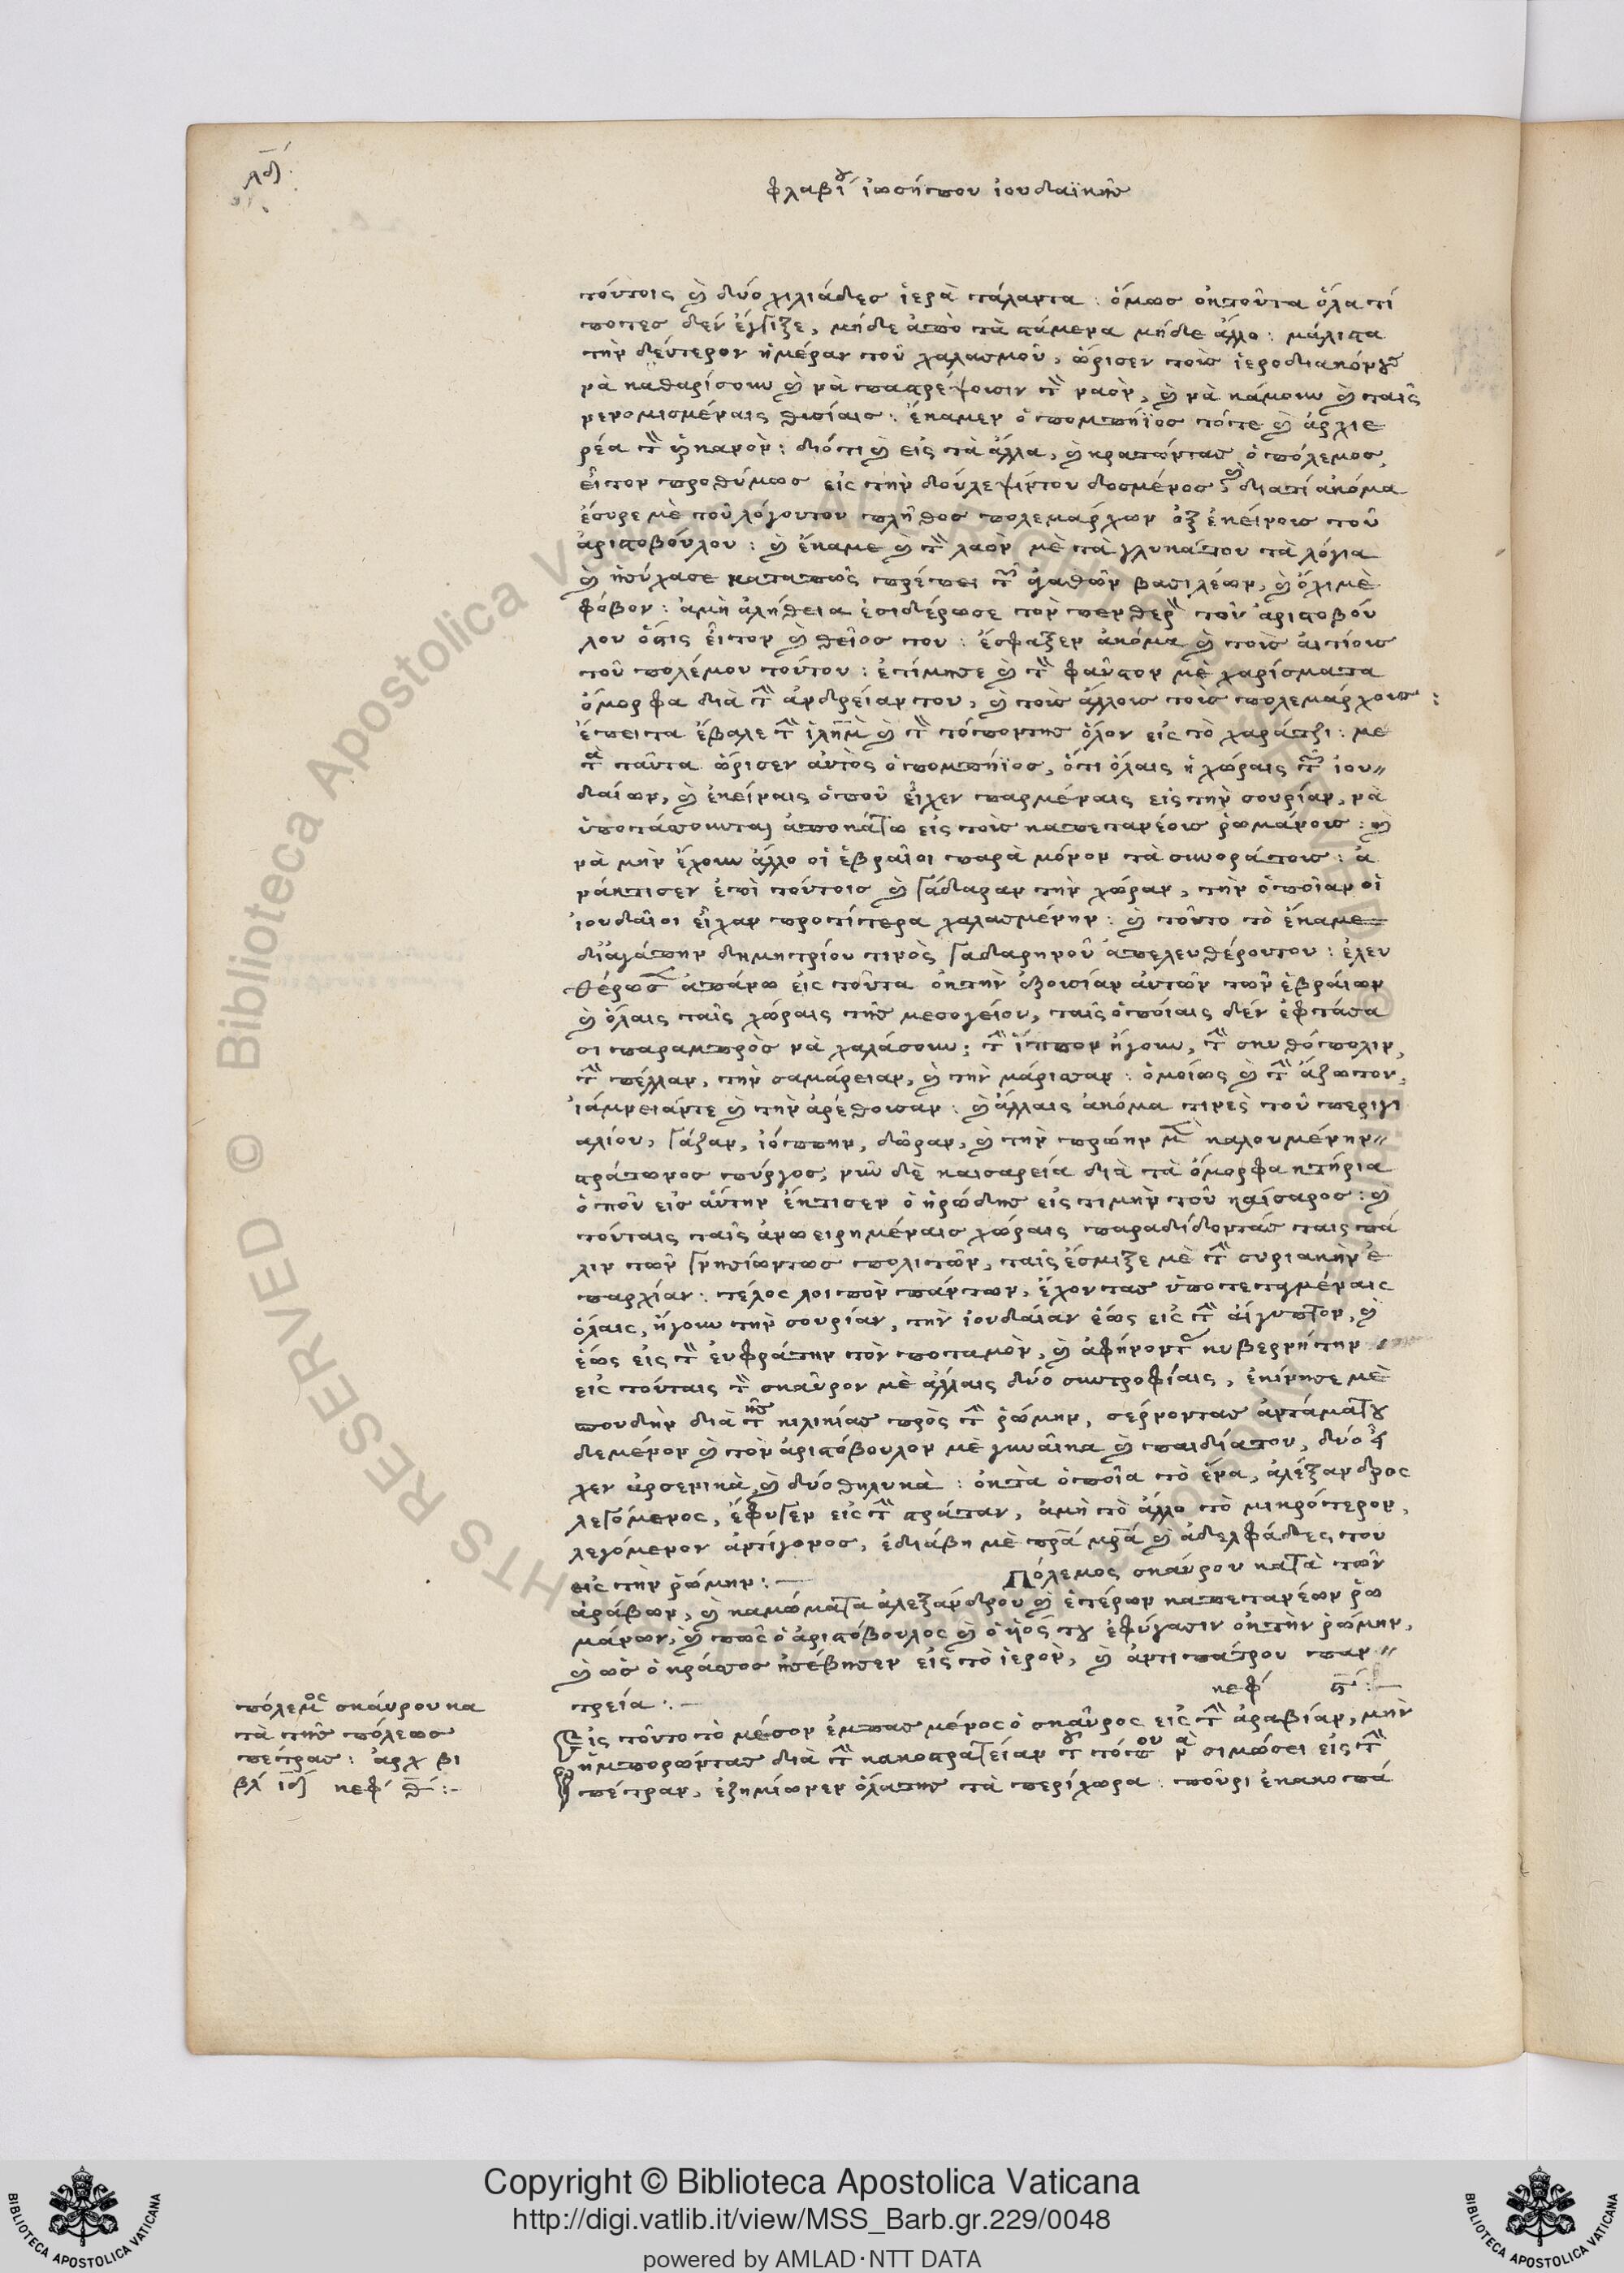 λδ
φλαβίου ἰωσήπου ἰουδαϊκῆς
τούτοις καὶ δύο χιλιάδες ἱερὰ τάλαντα : ὅμως ὀκ τοῦτα ὅλα τί
ποτες δὲν ἔγγιξε, μήδε ἀπὸ τὰ τάμενα μήδε ἄλλο : μάλιστα
τὴν δεύτερον ἡμέραν τοῦ χαλασμοῦ, ὥρισεν τοὺς ἱεροδιακόνους
νὰ καθαρίσουν καὶ νὰ παστρέψουσιν τὸν ναὸν, καὶ νὰ κάμουν καὶ ταῖς
νενομισμέναις θυσίαις : ἔκαμεν ὁ πομπήϊος τότε καὶ ἀρχιε
ρέα τὸν ὑρκανὸν : διότι καὶ εἰς τὰ ἄλλα, καὶ κρατώντας ὁ πόλεμος,
εἶτον προθύμως εἰς τὴν δούλεψίντου δοσμένος, καὶ διατί ἀκόμα
ἔσυρε μὲ τοῦ λόγουτου πλῆθος πολεμάρχων ὀξ ἐκείνους τοῦ
ἀριστοβούλου : καὶ ἔκαμε καὶ τὸν λαὸν μὲ τὰ γλυκάτου τὰ λόγια
καὶ ἡσύχασε καταπῶς πρέπει τῶν ἀγαθῶν βασιλέων, καὶ ὄχι μὲ
φόβον : ἀμὴ ἀλήθεια ἐσιδέρωσε τὸν πενθερὸν τοῦ ἀριστοβού
λου ὅστις εἶτον καὶ θεῖος του : ἔσφαξεν ἀκόμα καὶ τοὺς αἰτίους
τοῦ πολέμου τούτου : ἐτίμησε καὶ τὸν φαῦστον μὲ χαρίσματα
ὄμορφα διὰ τὴν ἀνδρείαντου, καὶ τοὺς ἄλλους τοὺς πολεμάρχους :
ἔπειτα ἔβαλε τὴν ἱλὴμ καὶ τὸν τόποντης ὅλον εἰς τὸ χαράτζι : με
τὰ ταῦτα ὥρισεν αὐτὸς ὁ πομπήϊος, ὅτι ὅλαις ἡ χώραις τῶν ἰου
δαίων, καὶ ἐκείναις ὁποῦ εἶχεν παρμέναις εἰς τὴν σουρίαν, νὰ
ὑποτάσουνται ἀποκάτω εἰς τοὺς καπετανέους ῥωμάνους : καὶ
νὰ μὴν ἔχουν ἄλλο οἱ ἑβραῖοι παρὰ μόνον τὰ συνοράτους : ἀ
νάκτισεν ἐπὶ τούτοις καὶ γάδαραν τὴν χώραν, τὴν ὁποῖαν οἱ
ἰουδαῖοι εἶχαν προτίτερα χαλασμένην : καὶ τοῦτο τὸ ἔκαμε
διἀγάπην δημητρίου τινὸς γαδαρηνοῦ ἀπελευθέρουτου : ἐλευ
θέρωσεν ἀπάνω εἰς τοῦτα ὀκ τὴν ἐξουσίαν αὐτῶν τῶν ἑβραίων
καὶ ὅλαις ταῖς χώραις τῆς μεσογείου, ταῖς ὁποίαις δὲν ἐφτάσα
σι παραμπρὸς νὰ χαλάσουν : τὴν ἵππον ἤγουν, τὴν σκυθόπολιν,
τὴν πέλλαν, τὴν σαμάρειαν, καὶ τὴν μάρισαν : ὁμοίως καὶ τὴν ἄζωτον,
ἰάμνειάντε καὶ τὴν ἀρέθουσαν : καὶ ἄλλαις ἀκόμα τινὲς τοῦ περιγι
αλίου, γάζαν, ἰόππην, δῶραν, καὶ τὴν πρώην μὲν καλουμένην
στράτωνος πύργος, νῦν δὲ καισαρεία διὰ τὰ ὄμορφα κτήρια
ὁποῦ εἰς αὔτην ἔκτισεν ὁ ἡρώδης εἰς τιμὴν τοῦ καίσαρος : καὶ
τούταις ταῖς ἀνωειρημέναις χώραις παραδίδοντάς ταις πά
λιν τῶν γνησίωντως πολιτῶν, ταῖς ἔσμιξε μὲ τὴν συριακὴν ἐ
παρχίαν : τέλος λοιπὸν πάντων, ἔχοντας ὑποτεταγμέναις
ὅλαις, ἤγουν τὴν σουρίαν, τὴν ἰουδαίαν ἕως εἰς τὴν αἴγυπτον, καὶ
ἕως εἰς τὸν εὐφράτην τὸν ποταμὸν, καὶ ἀφήνοντας κυβερνήτην
εἰς τούταις τὸν σκαῦρον μὲ ἄλλαις δύο συντροφίαις, ἐκίνησε μὲ
σπουδὴν διὰ τῆς κιλικίας πρὸς τὴν ῥώμην, σέρνοντας ἀντάματου
δεμένον καὶ τὸν ἀριστόβουλον μὲ γυναῖκα καὶ παιδιάτου, δύο εἶ
χεν ἀρσενικὰ, καὶ δύο θηλυκὰ : ὀκ τὰ ὁποῖα τὸ ἕνα, ἀλέξανδρος
λεγόμενος, ἔφυγεν εἰς τὴν στράταν, ἀμὴ τὸ ἄλλο τὸ μικρότερον,
λεγόμενον ἀντίγονος, ἐδιάβη μὲ πρα μρα καὶ ἀδελφάδες του
εἰς τὴν ῥώμην : Πόλεμος σκαύρου κατὰ τῶν
ἀράβων, καὶ καμώματα ἀλεξάνδρου καὶ ἑτέρων καπετανέων ῥω
μάνων, καὶ πῶς ὁ ἀριστόβουλος καὶ ὁ υἱός του ἐφύγασιν ὀκ τὴν ῥώμην,
καὶ ὡς ὁ κράσος ἠσέβησεν εἰς τὸ ἱερὸν, καὶ ἀντιπάτρου παν
τρεία : κεφ ς :
Εἰς τοῦτο τὸ μέσον ἐμπασμένος ὁ σκαῦρος εἰς τὴν ἀραβίαν, μὴν
ἠμπορώντας διὰ τὴν κακοστρατείαν τοῦ τόπου νὰ σιμώσει εἰς τὴν
πέτραν, ἐζημίωνεν ὅλατης τὰ περίχωρα : πούρι ἐκακοπά
πόλεμος σκαύρου κα
τὰ τῆς πόλεως
πέτρας : ἀρχ βι
βλ ιδ κεφ θ :
Copyright © Biblioteca Apostolica Vaticana
http://digi.vatlib.it/view/MSS_Barb.gr.229/0048
powered by AMLAD·NTT DATA
BIBLIOTECA APOSTOLICA VATICANA
BIBLIOTECA APOSTOLICA VATICANA